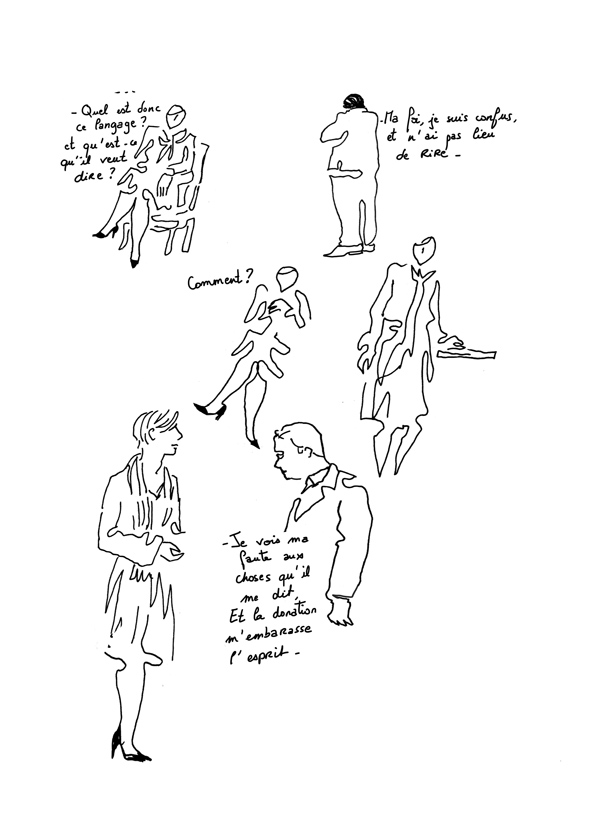 - Quel est donc
ce langage?
et qu'est-ce
qu'il veut
dire?
- Ma foi, je suis confus,
et n'ai pas lieu
de RiRe -
Comment?
- Je vois ma
faute aux
choses qu'il
me dit,
Et la donation
m'embarasse
l'esprit -